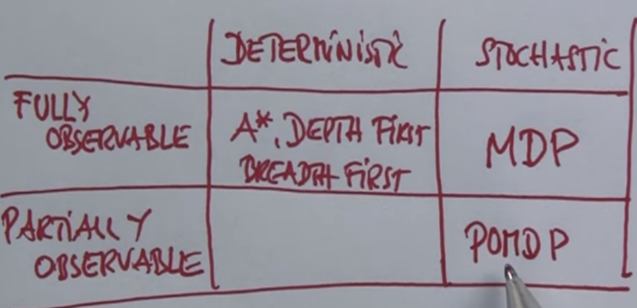 DETERMINISTIC STOCHASTIC
FULLY
OBSERVABLE
A*, DEPTH FIRST
BREADTH FIRST
MDP
PARTIALLY
OBSERVABLE
POMDP